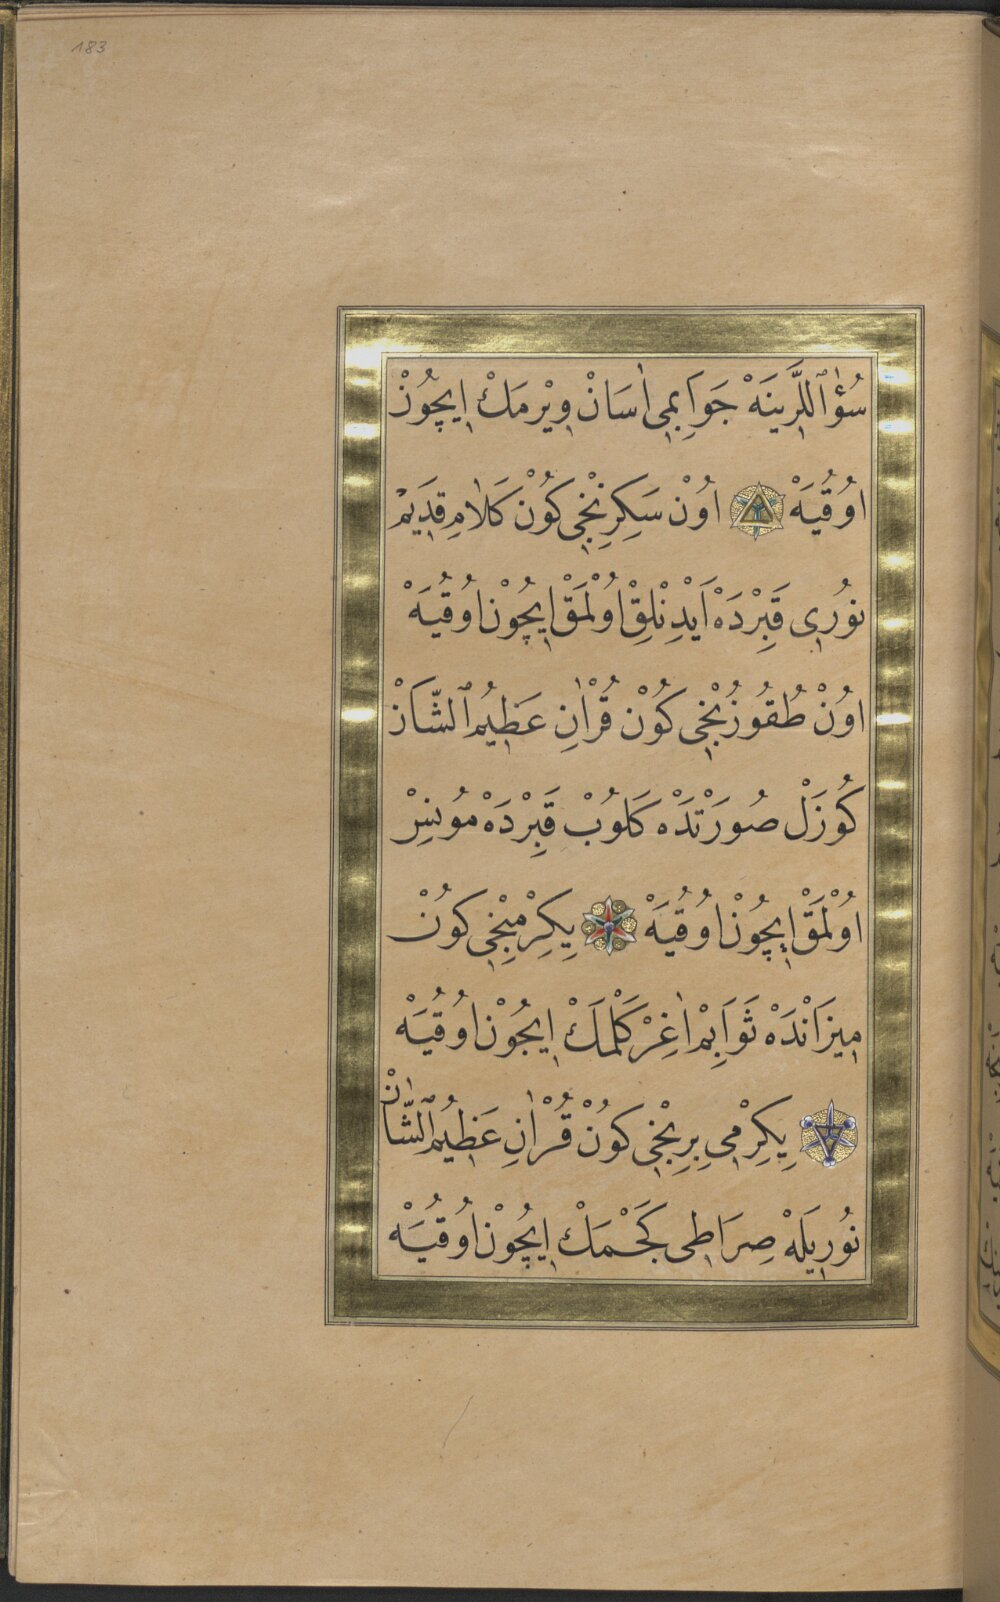 183
سُؤٰاللَّرِينَهْ جَوَابِمِى اٰسَانْ وِيْرمَكْ اِيچُونْ
اوُقُيَهْ اوُنْ سَكِزِنْجِى كُونْ كَلَامِ قَدِيمْ
نوُرِى قَبِرْدَهْ اَيْدِنْلِقْ اوُلْمَقْ اِيچُونْ اوُقُيَهْ
اوُنْ طُقوُزُنْجِى كُونْ قُرْاٰنِ عَظِيمُ ٱلشَّانْ
كُوزَلْ صُورَتْدَهْ كَلُوبْ قَبِرْدَهْ مُونِسِمْ
اوُلْمَقْ اِيچُونْ اوُقُيَهْ يِكِرْمِنْجِى كُونْ
مِيزَانْدَهْ ثَوَابِمْ اٰغِرْ كَلْمَكْ اِيچُونْ اوُقُيَهْ
يِكِرْمِى بِرِنْجِى كوُنْ قُرْاٰنِ عَظِيمُ ٱلشَّانْ
نُورِيلَهْ صِرَاطِى كَچْمَكْ اِيچُونْ اوُقُيَهْ